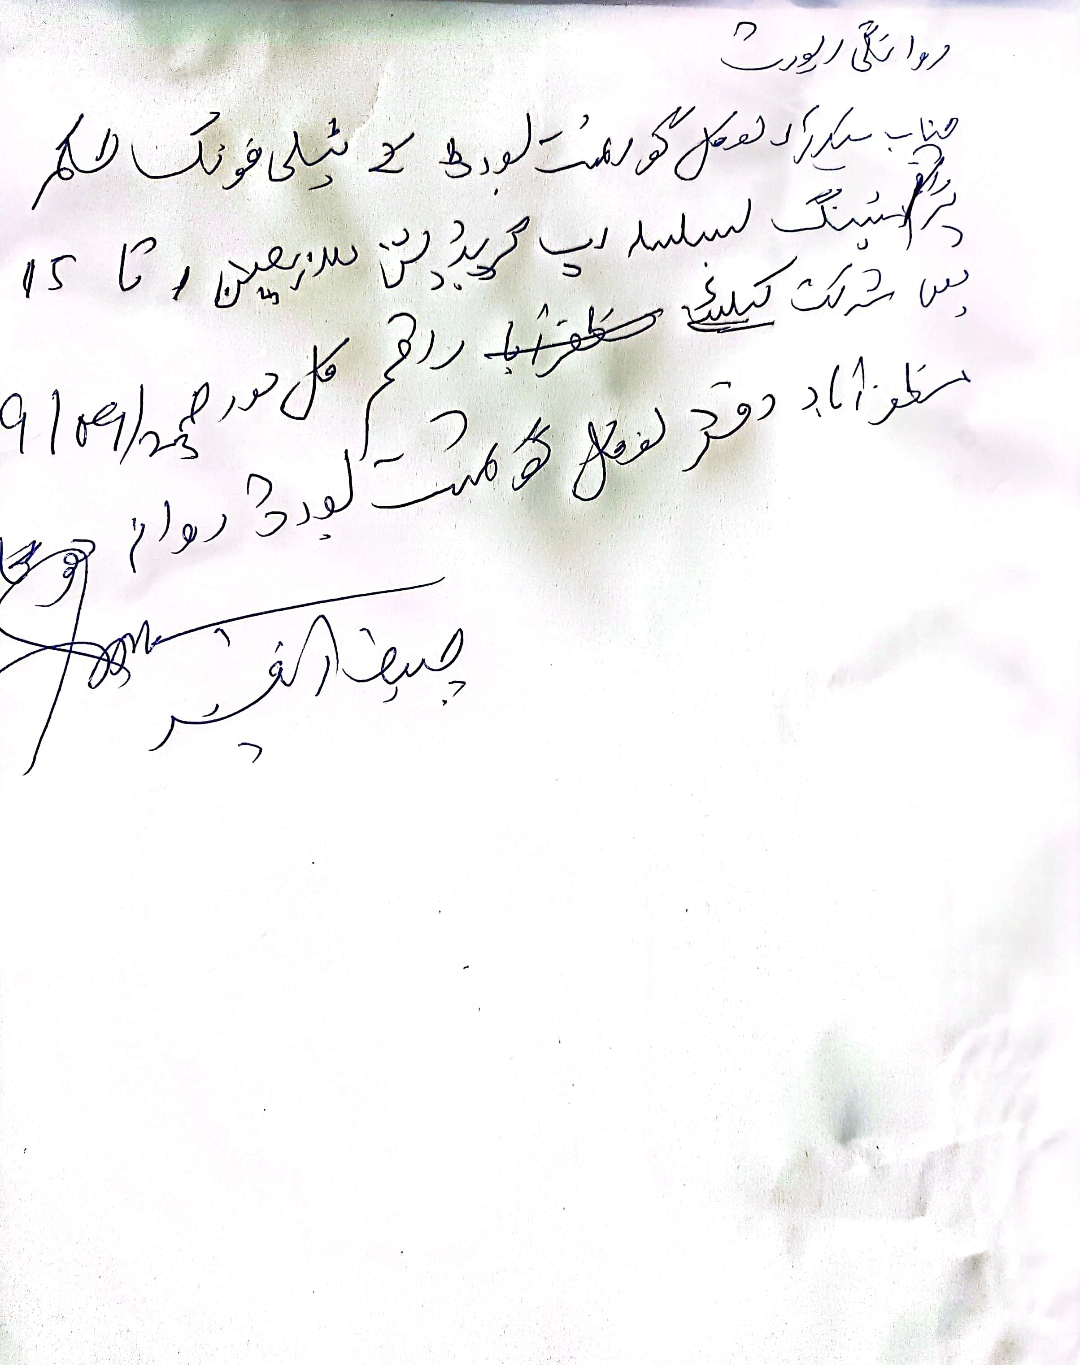 روانگی رپورٹ
جناب سیکرٹری لوکل گورنمنٹ بورڈ کے ٹیلی فونک حکم
پر میٹنگ بسلسلہ اپ گریڈیشن ملازمین 1 تا 15
میں شرکت کیلئے مظفرآباد راقم کل مورخہ 9/09/23
مظفرآباد دفتر لوکل گورنمنٹ بورڈ روانہ ہوگا
چیف آفیسر